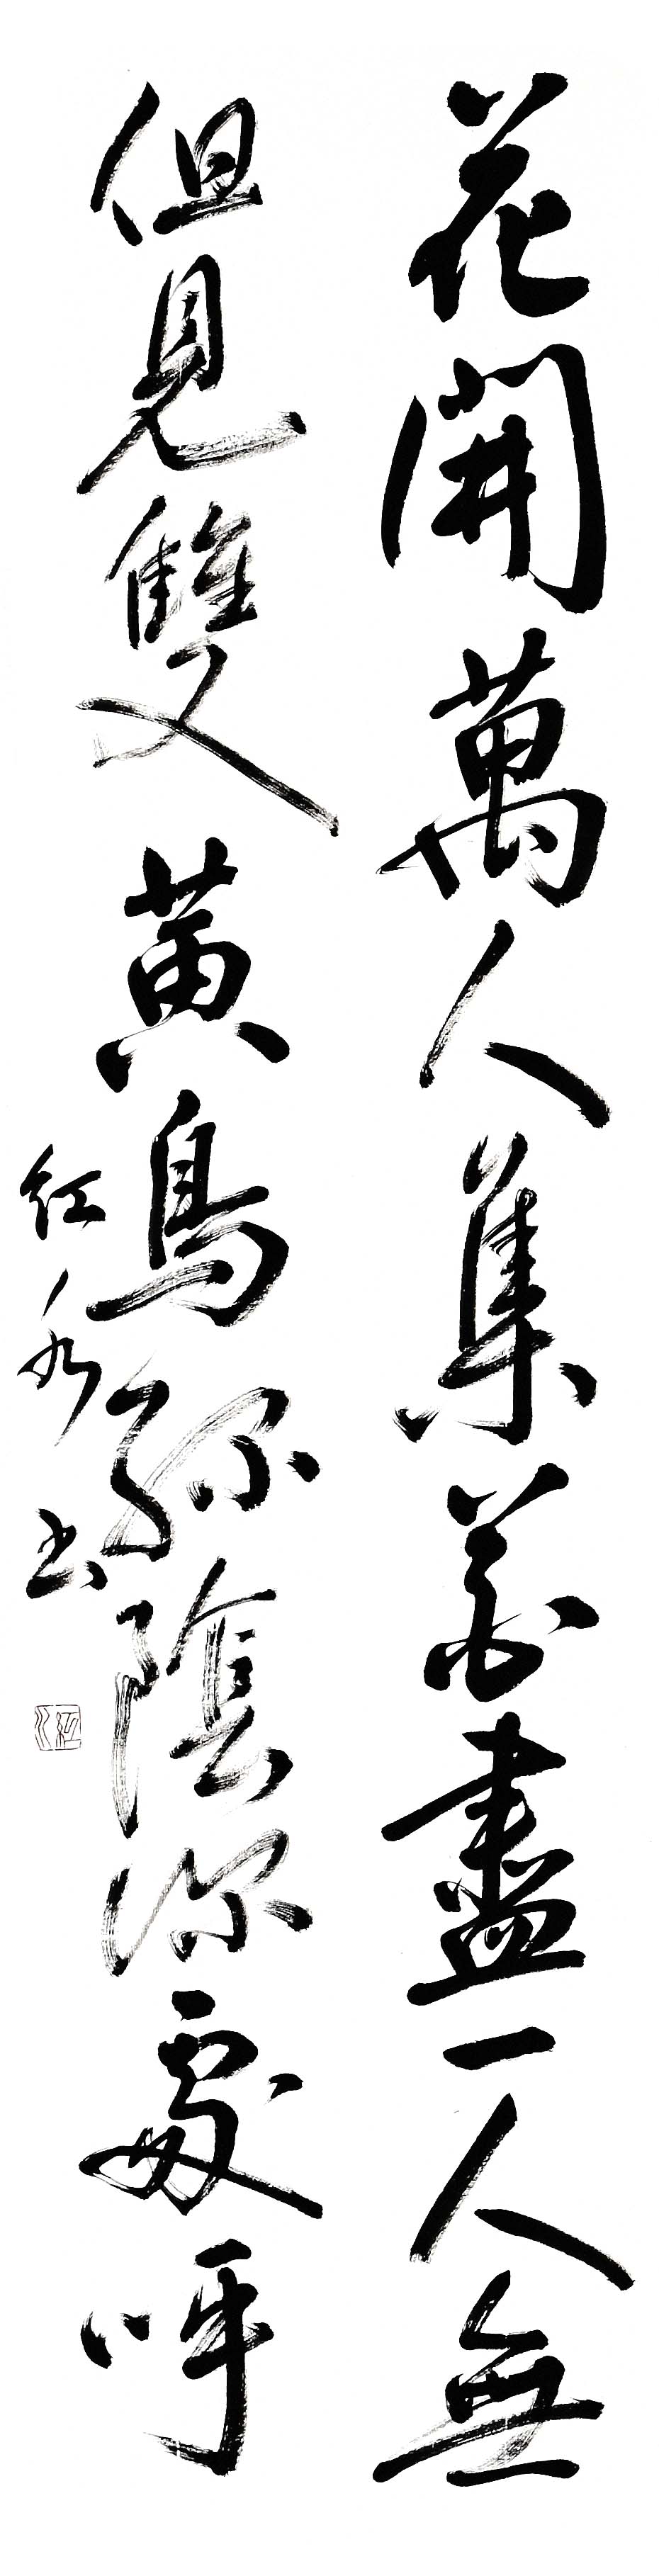 花開萬人集花盡一人無
但見雙黃鳥綠陰深處呼
紅 書